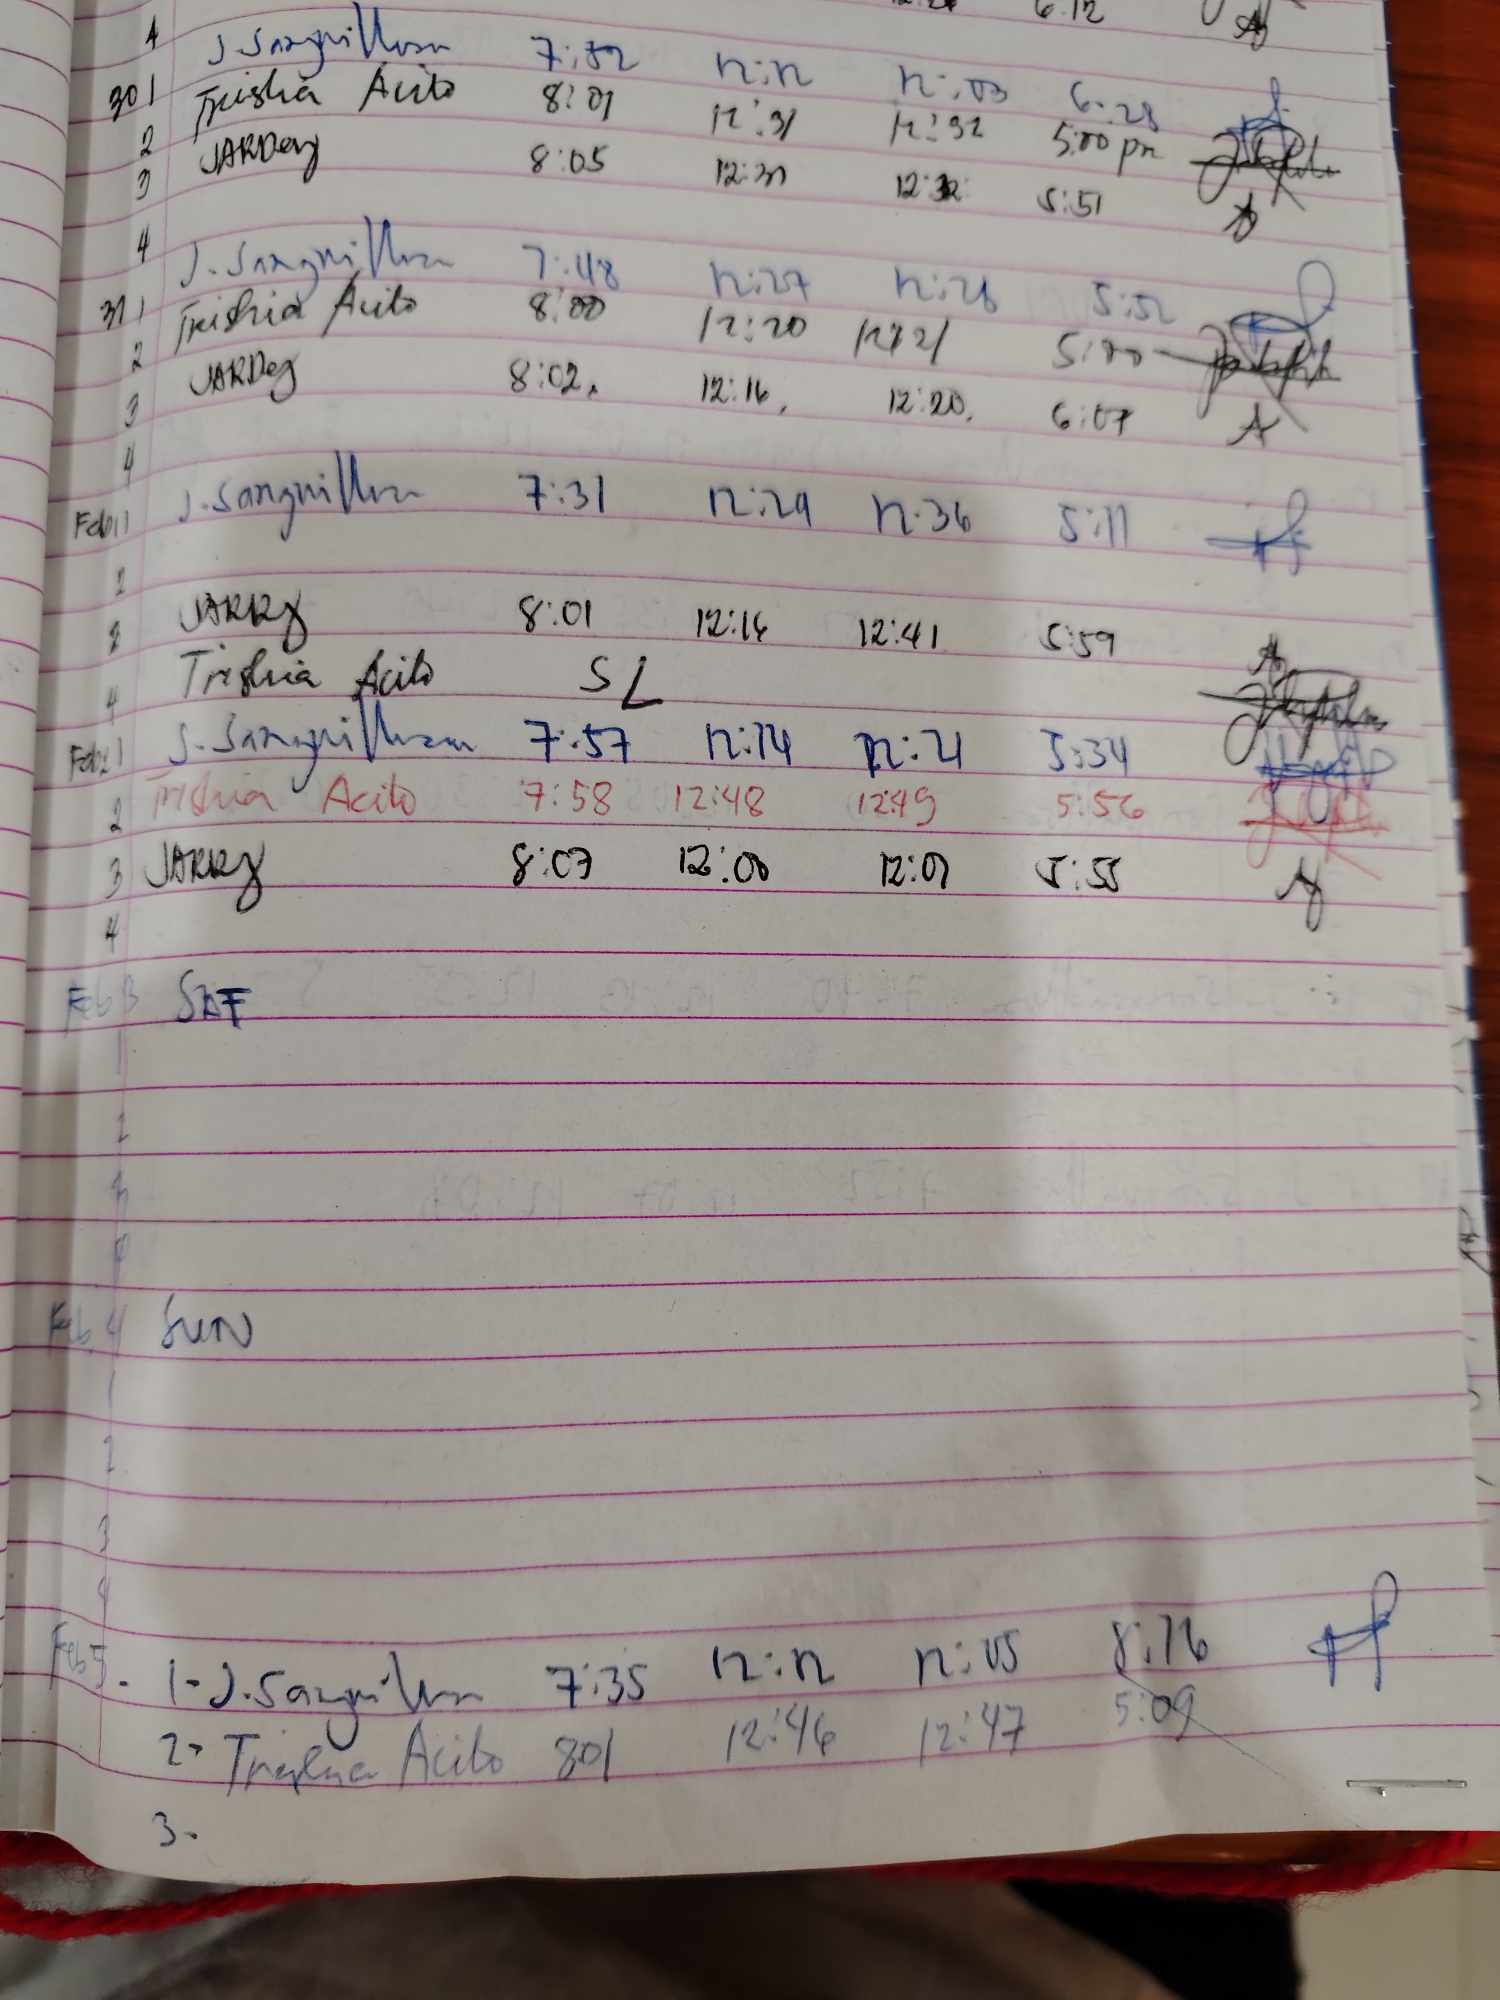 6:12
4
30 1 J. Sanguillosa 7:52 12:12 12:03 6:28
2 Trishia Acito 8:01 12:31 12:32 5:00 pm
3 8:05 12:31 12:32 5:51
4
31 1 J. Sanguillosa 7:48 12:27 12:28 5:52
2 Trishia Acito 8:00 12:20 12:21 5:00
3 8:02 12:16 12:20 6:07
4
Feb 1 1 J. Sanguillosa 7:31 12:29 12:36 5:11
2
3 8:01 12:16 12:41 5:59
4 Trishia Acito SL
Feb 2 1 J. Sanguillosa 7:57 12:14 12:21 5:34
2 Trishia Acito 7:58 12:48 12:49 5:56
3 8:07 12:00 12:01 5:55
4
Feb 3 SAT
1
2
3
Feb. 4 SUN
1
2
3
4
Feb 5. 1- J. Sanguillosa 7:35 12:12 12:05 8:16
2- Trishia Acito 801 12:46 12:47 5:09
3-